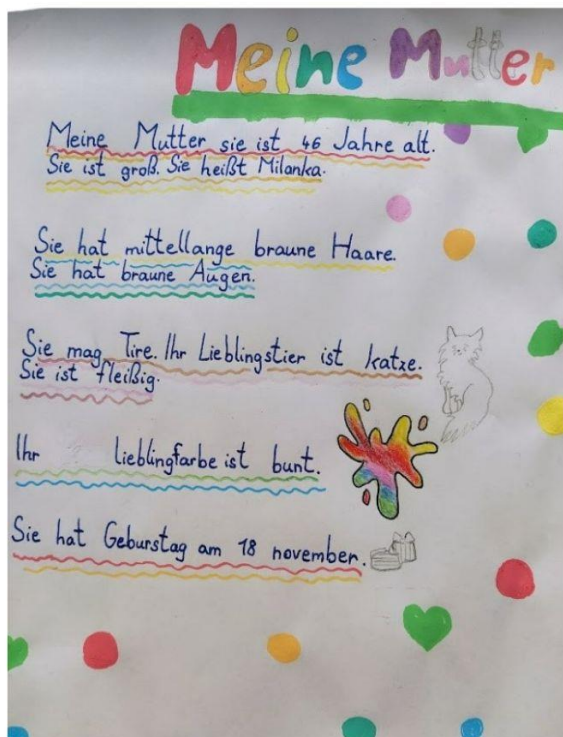 Meine Mutter
Meine Mutter sie ist 46 Jahre alt.
Sie ist groß. Sie heißt Milanka.
Sie hat mittellange braune Haare.
Sie hat braune Augen.
Sie mag Tire. Ihr Lieblingstier ist katze.
Sie ist fleißig.
Ihr Lieblingfarbe ist bunt.
Sie hat Geburstag am 18 november.